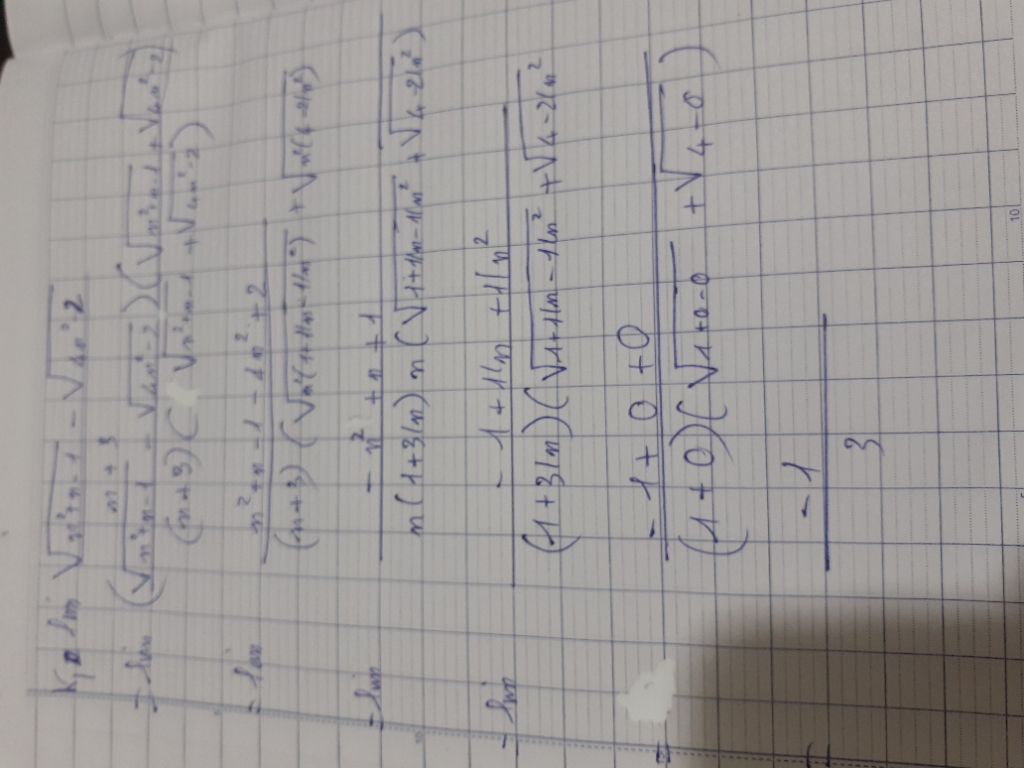 K, lim √n²+n-1 - √4n²-2
n+3
= lim (√n²+n-1 - √4n²-2)(√n²+n-1 + √4n²-2)
(n+3)(√n²+n-1 + √4n²-2)
= lim n²+n-1-4n²+2
(n+3)(√n²(1+1/n-1/n²) + √n²(4-2/n²)
= lim -n²+n+1
n(1+3/n)n(√1+1/n-1/n² + √4-2/n²)
= lim -1+1/n+1/n²
(1+3/n)(√1+1/n-1/n² + √4-2/n²
= -1+0+0
(1+0)(√1+0-0 + √4-0)
= -1
3
10